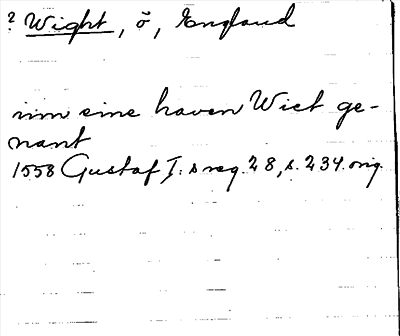 ? Wight, ö, England
inn eine haven Wict ge-
nant
1558 Gustaf I:s reg. 28, s. 234. orig.